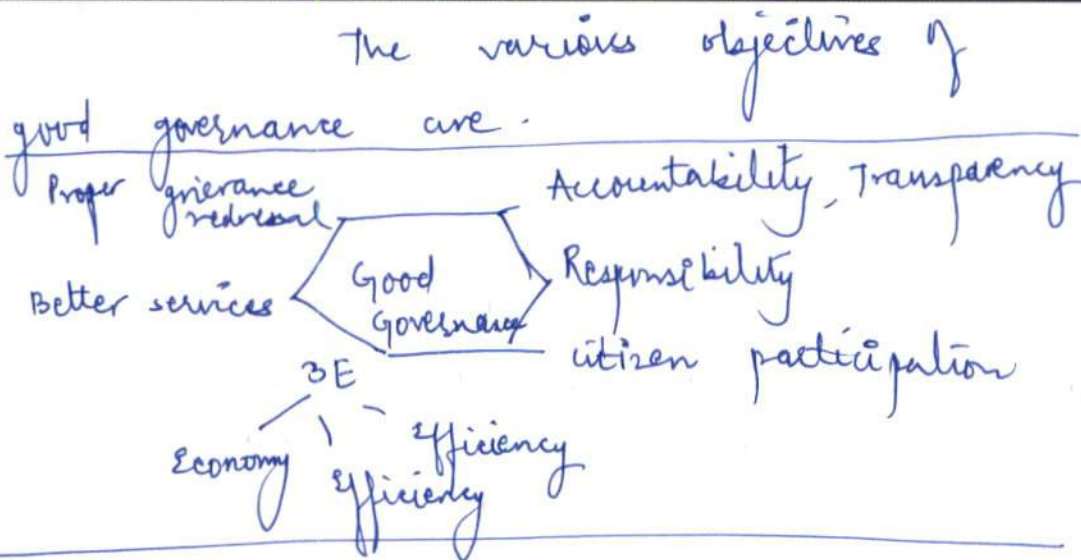 The various objectives of
good governance are.
Proper grievance
redressal
Accountability, Transparency
Better services
Good
Governance
Responsibility
citizen participation
3E
Economy
Efficiency
Efficiency